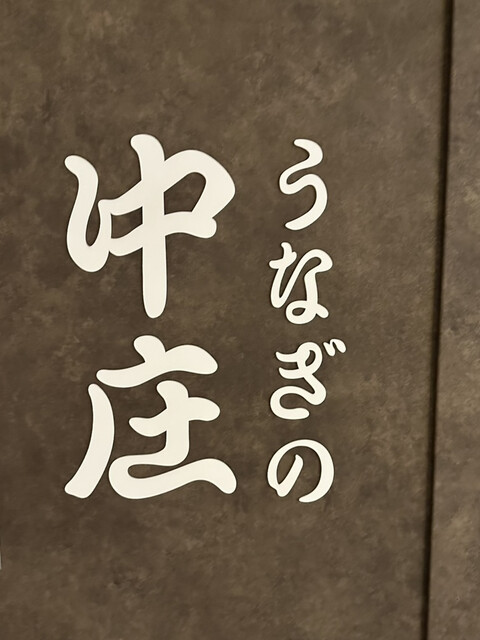 うなぎの
中庄